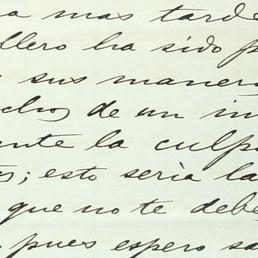 a mas tarde
llero ha sido p
sus maner
chos de un in
ante la culp
s; esto seria la
que no te debe
pues espero sa